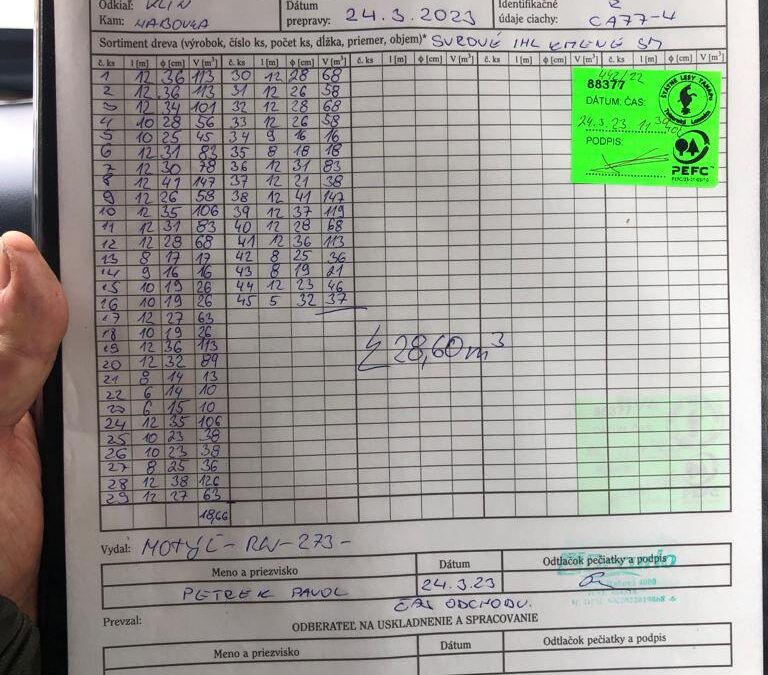 Odkiaľ: KLIN
Kam: HABOVKA
Dátum prepravy: 24.3.2023
Identifikačné údaje ciachy: 2 CA77-4
Sortiment dreva (výrobok, číslo ks, počet ks, dĺžka, priemer, objem)* SUROVÉ IHL KMENE SM
č. ks l [m] ϕ [cm] V [m³] č. ks l [m] ϕ [cm] V [m³] č. ks l [m] ϕ [cm] V [m³] č. ks l [m] ϕ [cm] V [m³]
1 12 36 113 30 12 28 68
2 12 36 113 31 12 26 58
3 12 34 101 32 12 28 68
4 10 28 56 33 12 26 58
5 10 25 45 34 9 16 16
6 12 31 83 35 8 18 18
7 12 30 78 36 12 31 83
8 12 41 147 37 12 21 38
9 12 26 58 38 12 41 147
10 12 35 106 39 12 37 119
11 12 31 83 40 12 28 68
12 12 28 68 41 12 36 113
13 8 17 17 42 8 25 36
14 9 16 16 43 8 19 21
15 10 19 26 44 12 23 46
16 10 19 26 45 5 32 37
17 12 27 63
18 10 19 26
19 12 36 113
20 12 32 89
21 8 14 13
22 6 14 10
23 6 15 10
24 12 35 106
25 10 23 38
26 10 23 38
27 8 25 36
28 12 38 126
29 12 27 63
18,66
Σ 28,60 m³
442/22
88377
DÁTUM: ČAS:
24.3.23 11
PODPIS:
ŠTÁTNE LESY TANAPU
Tatranská Lomnica
PEFC
Vydal: MOTÝĽ - RN-273-
Meno a priezvisko Dátum Odtlačok pečiatky a podpis
PETREK PAVOL 24.3.23
ČAS ODCHODU.
Prevzal: ODBERATEĽ NA USKLADNENIE A SPRACOVANIE
Meno a priezvisko Dátum Odtlačok pečiatky a podpis